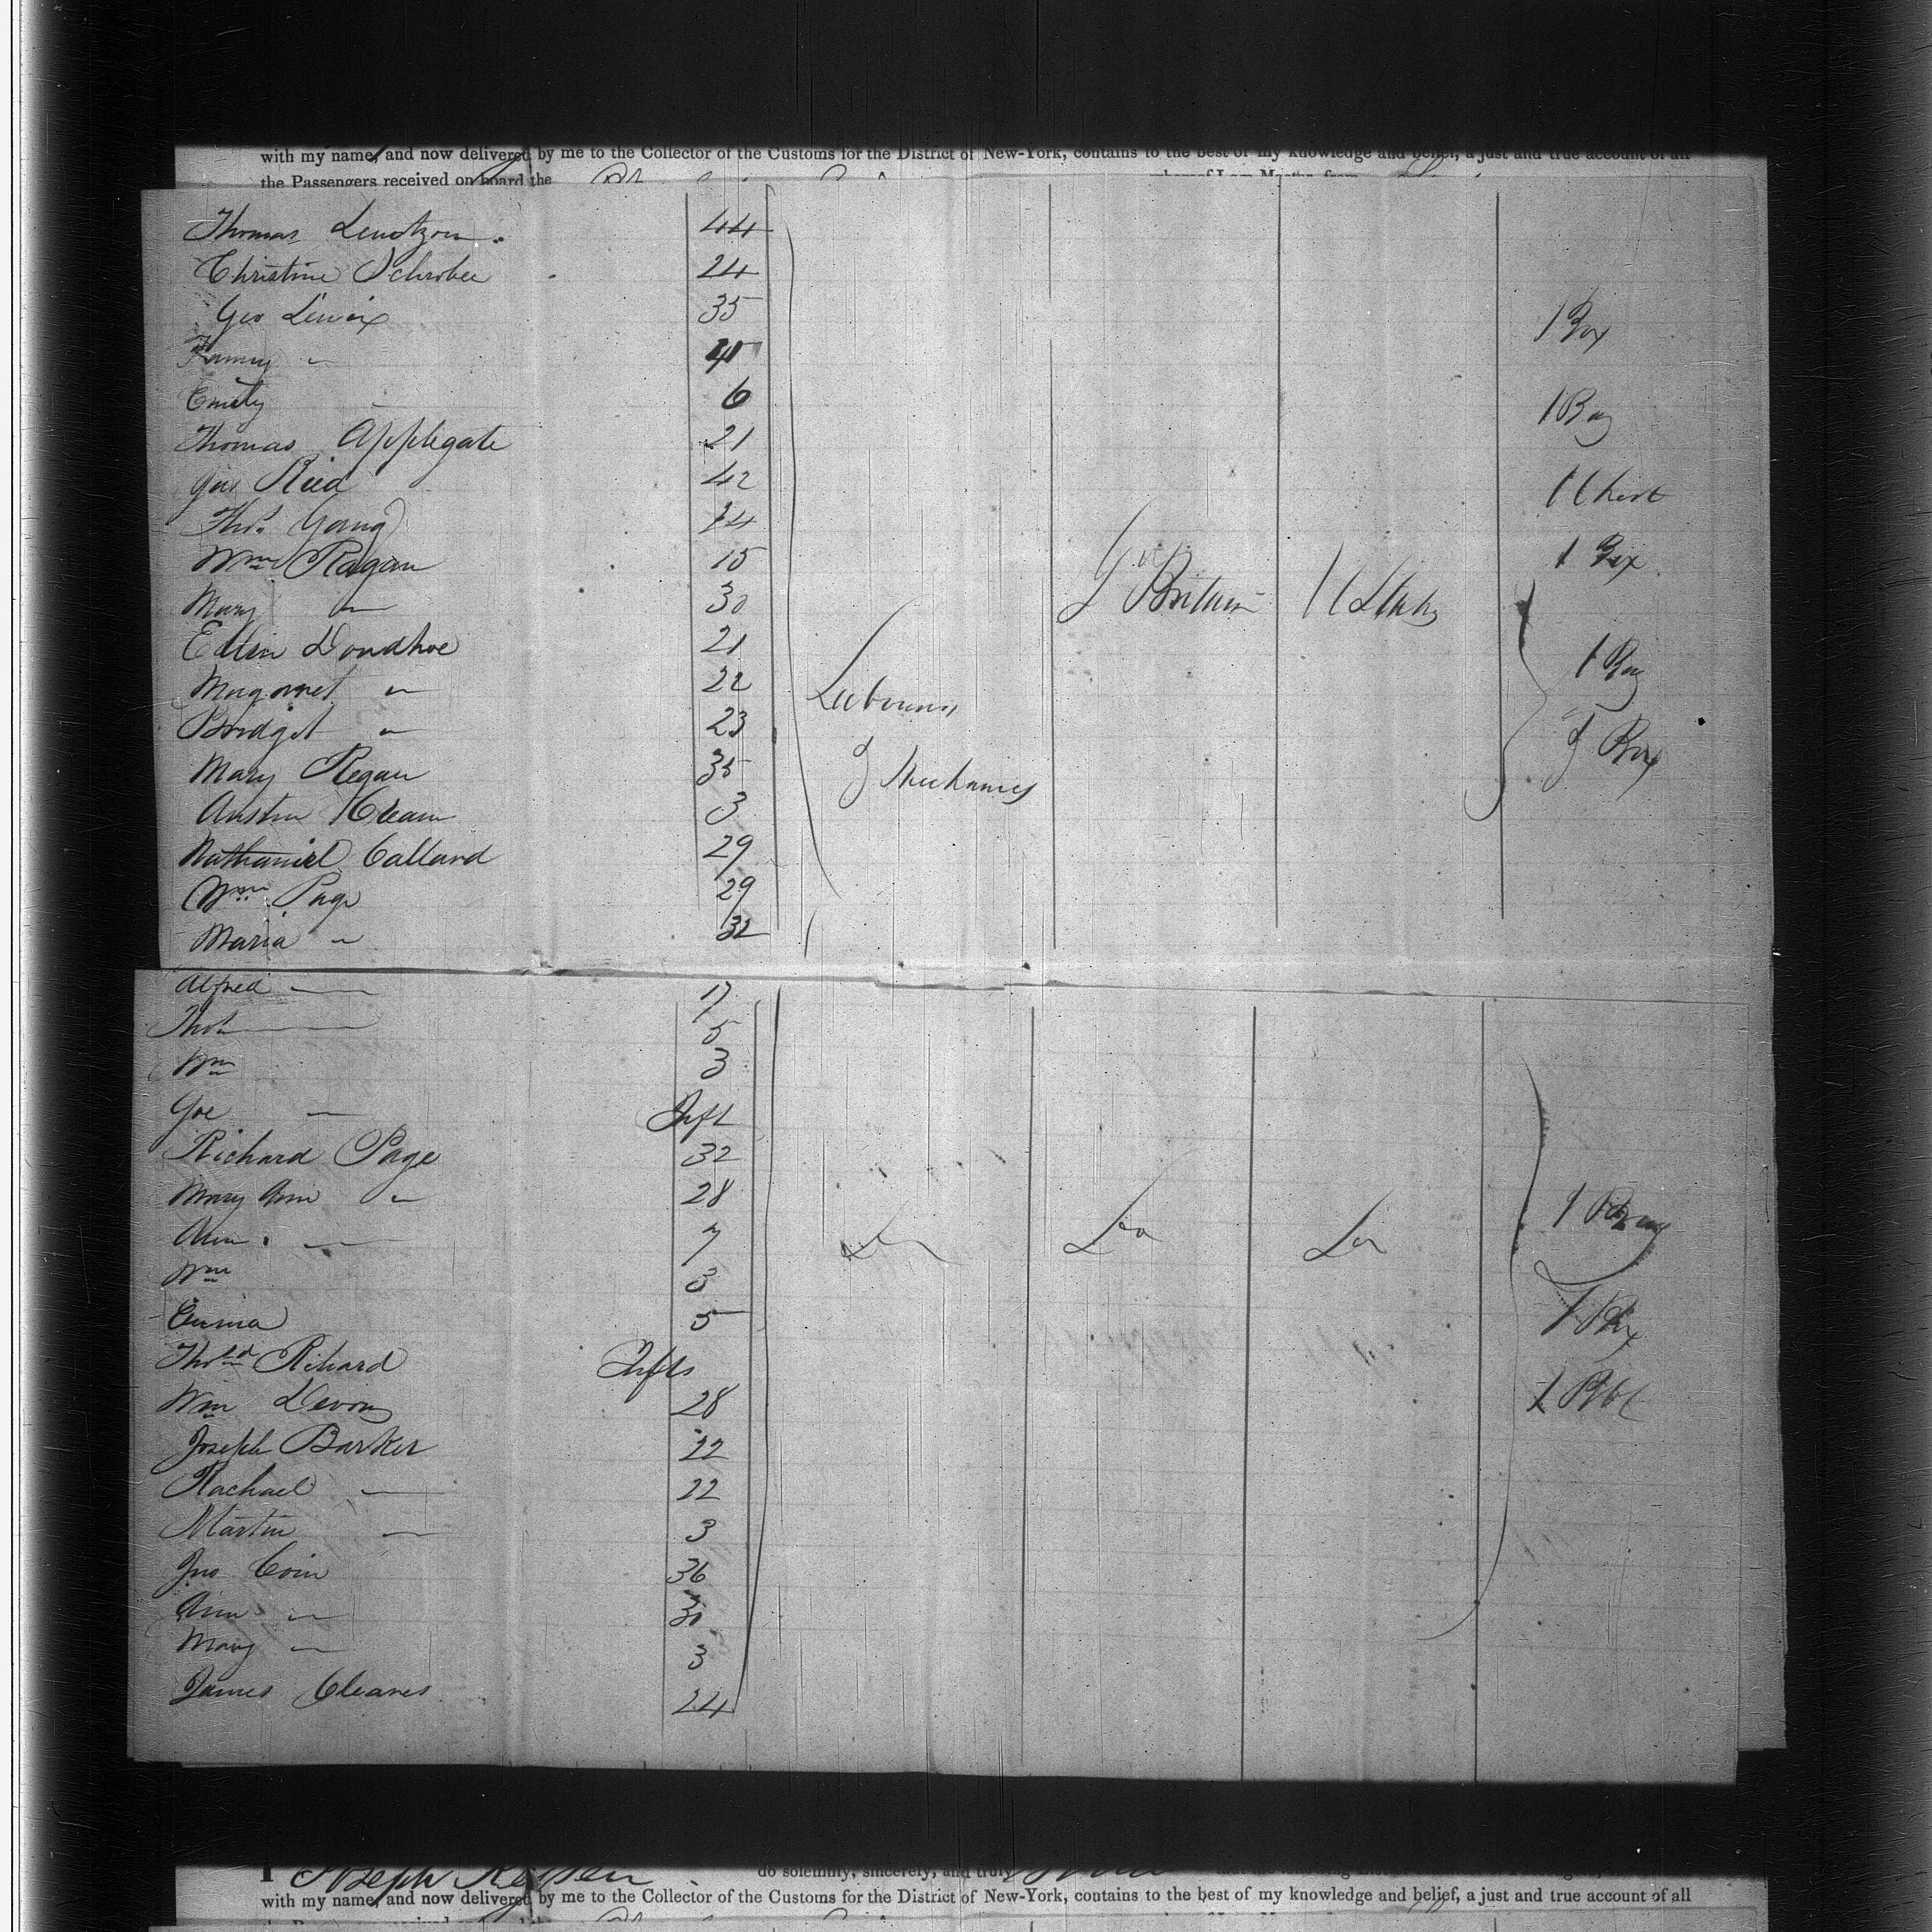 with my name, and now delivered by me to the Collector of the Customs for the District of New-York, contains to the best of my knowledge and belief, a just and true account of all
the Passengers received on board the
Thomas 44
Christine 24
Geo 35 1 Box
Fanny "
Emily 6 1 Bag
Thomas Applegate 21
Jas Reed 42 1 Chest
Thos. Yong 14 1 Box
Wm Ragan 15
Mary " 30 Gt Britain U States
Ellin Donahoe 21 1 Bag
Margaret " 22 Labourers
Bridget " 23 & Box
Mary Regan 35 & Mechanics
Austin 3
Nathaniel Callard 29
Wm Page 29
Maria " 32
Alfred —
Thos — 5
Wm 3
Joe — Inft
Richard Page 32
Mary Ann " 28 1 Bag
Ann — 7 Do Do Do
Wm 3
Emma 5 1 Box
Thos & Richard Infts
Wm 28 1 Bbl
Joseph Barker 22
Rachael — 22
Martin — 3
Jno Coin 36
Ann " 30
Mary " 3
James Cleaves 24
I Joseph do solemnly, sincerely, and truly
with my name, and now delivered by me to the Collector of the Customs for the District of New-York, contains to the best of my knowledge and belief, a just and true account of all